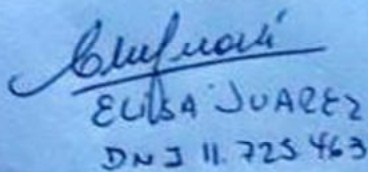 ELISA JUAREZ
DNI 11.725.463